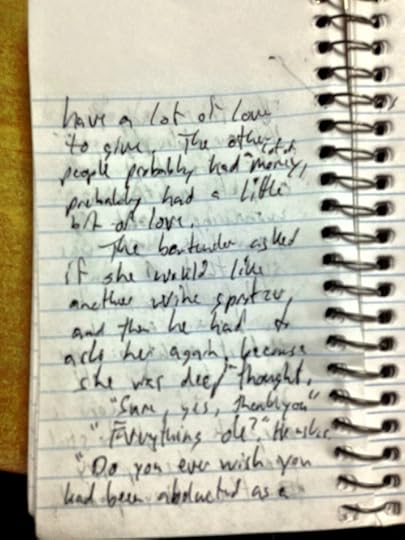 have a lot of love
to give. The other
people probably had a lot of money,
probably had a little
bit of love.
The bartender asked
if she would like
another wine spritzer,
and then he had to
ask her again, because
she was deep thought.
"Sure, yes, thank you"
"Everything ok?" He asks.
"Do you ever wish you
had been abducted as a